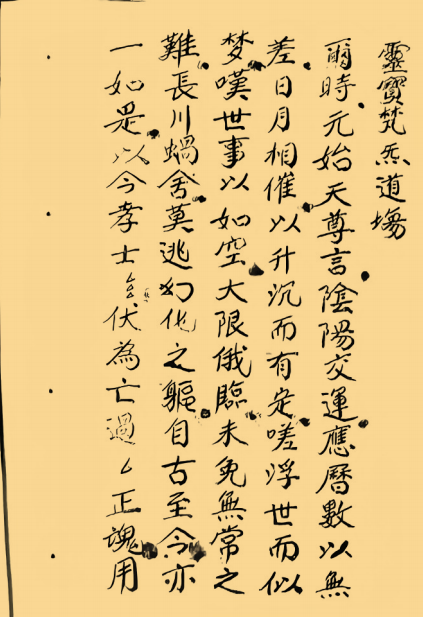 靈寶梵炁道場
爾時元始天尊言陰陽交運應曆數以無
差日月相催以升沉而有定嗟浮世而似
梦嘆世事以如空大限俄臨未免無常之
難長川蝸舍莫逃幻化之軀自古至今亦
一如是以今孝士伏為亡過厶正魂用